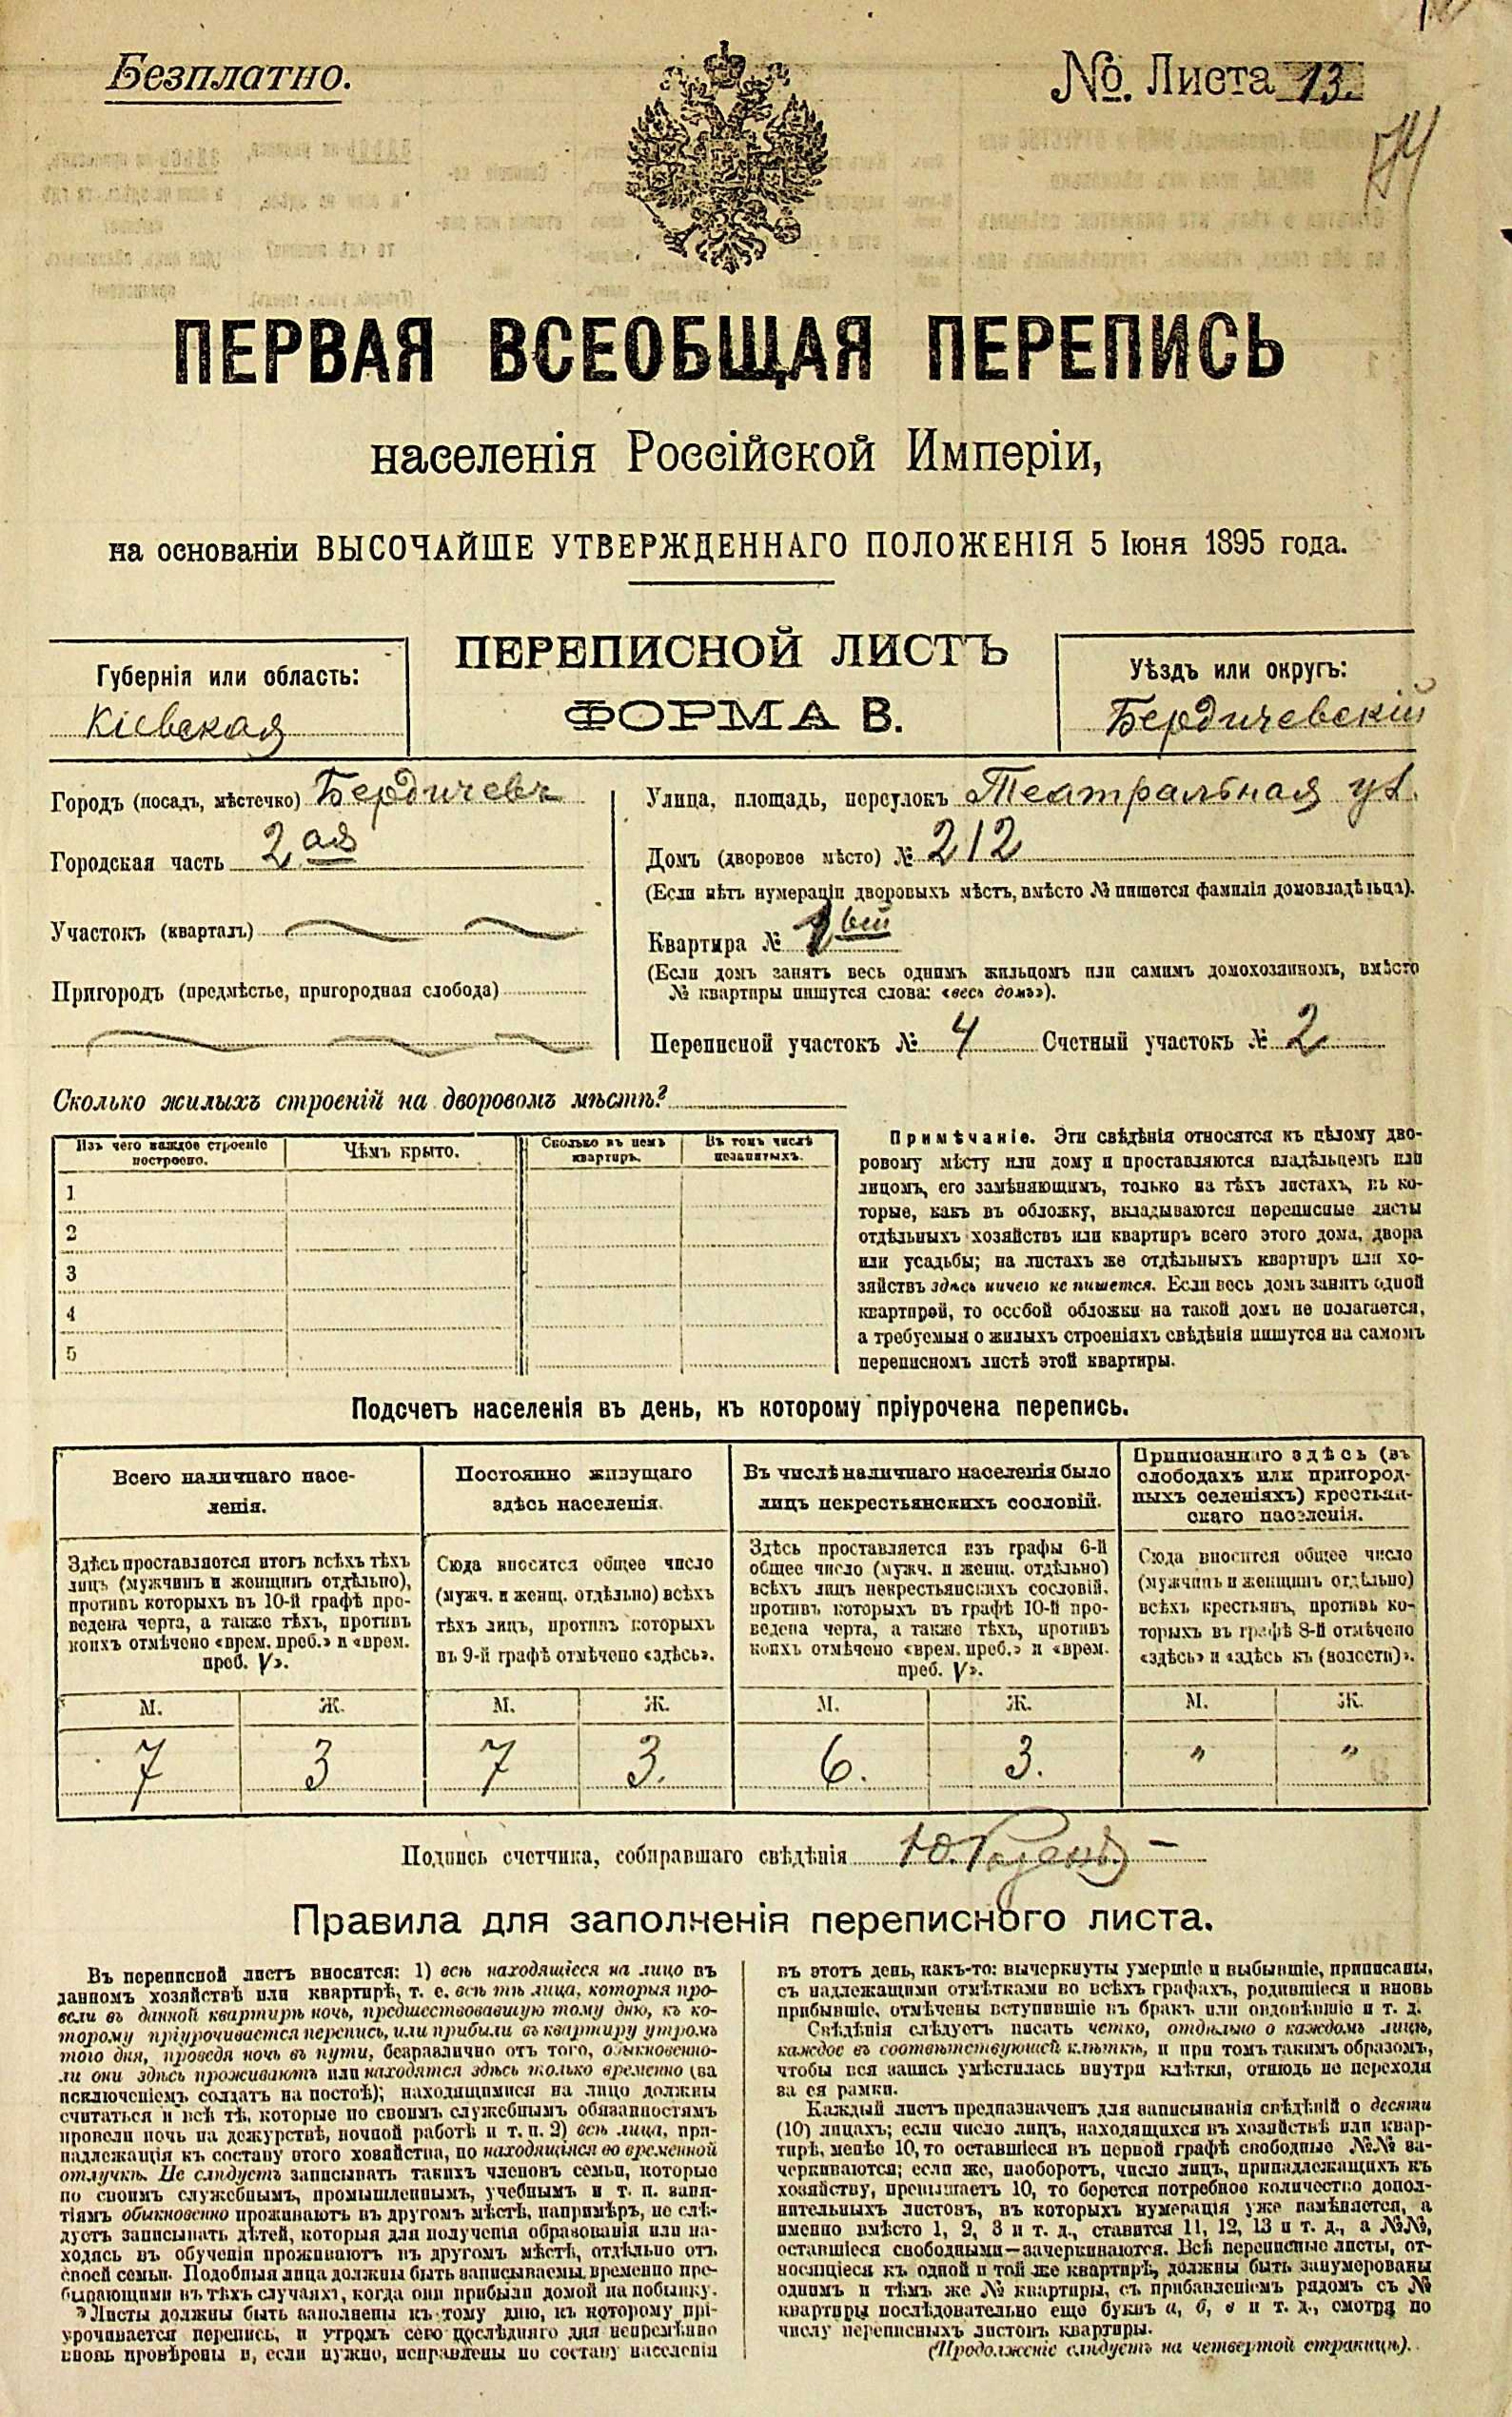 Безплатно.
№. Листа 13.
ПЕРВАЯ ВСЕОБЩАЯ ПЕРЕПИСЬ
населенія Россійской Имперіи,
на основаніи ВЫСОЧАЙШЕ УТВЕРЖДЕННАГО ПОЛОЖЕНІЯ 5 Іюня 1895 года.
ПЕРЕПИСНОЙ ЛИСТЪ
ФОРМА В.
Губернія или область:
Кіевская
Уѣздъ или округъ:
Бердичевскій
Городъ (посадъ, мѣстечко) Бердичевъ
Городская часть 2ая
Участокъ (кварталъ)
Пригородъ (предмѣстье, пригородная слобода)
Улица, площадь, переулокъ Театральная ул.
Домъ (дворовое мѣсто) № 212
(Если нѣтъ нумераціи дворовыхъ мѣстъ, вмѣсто № пишется фамилія домовладѣльца).
Квартира № 1
(Если домъ занятъ весь однимъ жильцомъ или самимъ домохозяиномъ, вмѣсто
№ квартиры пишутся слова: «весь домъ»).
Переписной участокъ № 4 Счетный участокъ № 2
Сколько жилыхъ строеній на дворовомъ мѣстѣ?
Изъ чего каждое строеніе построено.
Чѣмъ крыто.
Сколько въ немъ квартиръ.
Въ томъ числѣ незанятыхъ.
1
2
3
4
5
Примѣчаніе. Эти свѣдѣнія относятся къ цѣлому дво-
ровому мѣсту или дому и проставляются владѣльцемъ или
лицомъ, его замѣняющимъ, только на тѣхъ листахъ, въ ко-
торые, какъ въ обложку, вкладываются переписные листы
отдѣльныхъ хозяйствъ или квартиръ всего этого дома, двора
или усадьбы; на листахъ же отдѣльныхъ квартиръ или хо-
зяйствъ здѣсь ничего не пишется. Если весь домъ занятъ одной
квартирой, то особой обложки на такой домъ не полагается,
а требуемыя о жилыхъ строеніяхъ свѣдѣнія пишутся на самомъ
переписномъ листѣ этой квартиры.
Подсчетъ населенія въ день, къ которому пріурочена перепись.
Всего наличнаго насе-
ленія.
Здѣсь проставляется итогъ всѣхъ тѣхъ
лицъ (мужчинъ и женщинъ отдѣльно),
противъ которыхъ въ 10-й графѣ про-
ведена черта, а также тѣхъ, противъ
коихъ отмѣчено «врем. преб.» и «врем.
преб. V».
Постоянно живущаго
здѣсь населенія.
Сюда вносится общее число
(мужч. и женщ. отдѣльно) всѣхъ
тѣхъ лицъ, противъ которыхъ
въ 9-й графѣ отмѣчено «здѣсь».
Въ числѣ наличнаго населенія было
лицъ некрестьянскихъ сословій.
Здѣсь проставляется изъ графы 6-й
общее число (мужч. и женщ. отдѣльно)
всѣхъ лицъ некрестьянскихъ сословій,
противъ которыхъ въ графѣ 10-й про-
ведена черта, а также тѣхъ, противъ
коихъ отмѣчено «врем. преб.» и «врем.
преб. V».
Приписаннаго здѣсь (въ
слободахъ или пригород-
ныхъ селеніяхъ) крестьян-
скаго населенія.
Сюда вносится общее число
(мужчинъ и женщинъ отдѣльно)
всѣхъ крестьянъ, противъ ко-
торыхъ въ графѣ 8-й отмѣчено
«здѣсь» и «здѣсь къ (волости)».
М. Ж. М. Ж. М. Ж. М. Ж.
7 3 7 3. 6. 3. " "
Подпись счетчика, собиравшаго свѣдѣнія
Правила для заполненія переписного листа.
Въ переписной листъ вносятся: 1) всѣ находящіеся на лицо въ
данномъ хозяйствѣ или квартирѣ, т. е. всѣ тѣ лица, которыя про-
вели въ данной квартирѣ ночь, предшествовавшую тому дню, къ ко-
торому пріурочивается перепись, или прибыли въ квартиру утромъ
того дня, проведя ночь въ пути, безразлично отъ того, обыкновенно-
ли они здѣсь проживаютъ или находятся здѣсь только временно (за
исключеніемъ солдатъ на постоѣ); находящимися на лицо должны
считаться и всѣ тѣ, которые по своимъ служебнымъ обязанностямъ
провели ночь на дежурствѣ, ночной работѣ и т. п. 2) всѣ лица, при-
надлежащія къ составу этого хозяйства, но находящіяся во временной
отлучкѣ. Не слѣдуетъ записывать такихъ членовъ семьи, которые
по своимъ служебнымъ, промышленнымъ, учебнымъ и т. п. заня-
тіямъ обыкновенно проживаютъ въ другомъ мѣстѣ, напримѣръ, не слѣ-
дуетъ записывать дѣтей, которыя для полученія образованія или на-
ходясь въ обученіи проживаютъ въ другомъ мѣстѣ, отдѣльно отъ
своей семьи. Подобныя лица должны быть записываемы временно пре-
бывающими въ тѣхъ случаяхъ, когда они прибыли домой на побывку.
Листы должны быть заполнены къ тому дню, къ которому прі-
урочивается перепись, и утромъ сего послѣдняго дня непремѣнно
вновь провѣрены и, если нужно, исправлены по составу населенія
въ этотъ день, какъ-то: вычеркнуты умершіе и выбывшіе, приписаны,
съ надлежащими отмѣтками во всѣхъ графахъ, родившіеся и вновь
прибывшіе, отмѣчены вступившіе въ бракъ или овдовѣвшіе и т. д.
Свѣдѣнія слѣдуетъ писать четко, отдѣльно о каждомъ лицѣ,
каждое въ соотвѣтствующей клѣткѣ, и при томъ такимъ образомъ,
чтобы вся запись умѣстилась внутри клѣтки, отнюдь не переходя
за ея рамки.
Каждый листъ предназначенъ для записыванія свѣдѣній о десяти
(10) лицахъ; если число лицъ, находящихся въ хозяйствѣ или квар-
тирѣ, менѣе 10, то оставшіеся въ первой графѣ свободные №№ за-
черкиваются; если же, наоборотъ, число лицъ, принадлежащихъ къ
хозяйству, превышаетъ 10, то берется потребное количество допол-
нительныхъ листовъ, въ которыхъ нумерація уже измѣняется, а
именно вмѣсто 1, 2, 3 и т. д., ставится 11, 12, 13 и т. д., а №№,
оставшіеся свободными—зачеркиваются. Всѣ переписные листы, от-
носящіеся къ одной и той же квартирѣ, должны быть занумерованы
однимъ и тѣмъ же № квартиры, съ прибавленіемъ рядомъ съ №
квартиры послѣдовательно еще буквъ а, б, в и т. д., смотря по
числу переписныхъ листовъ квартиры.
(Продолженіе слѣдуетъ на четвертой страницѣ).